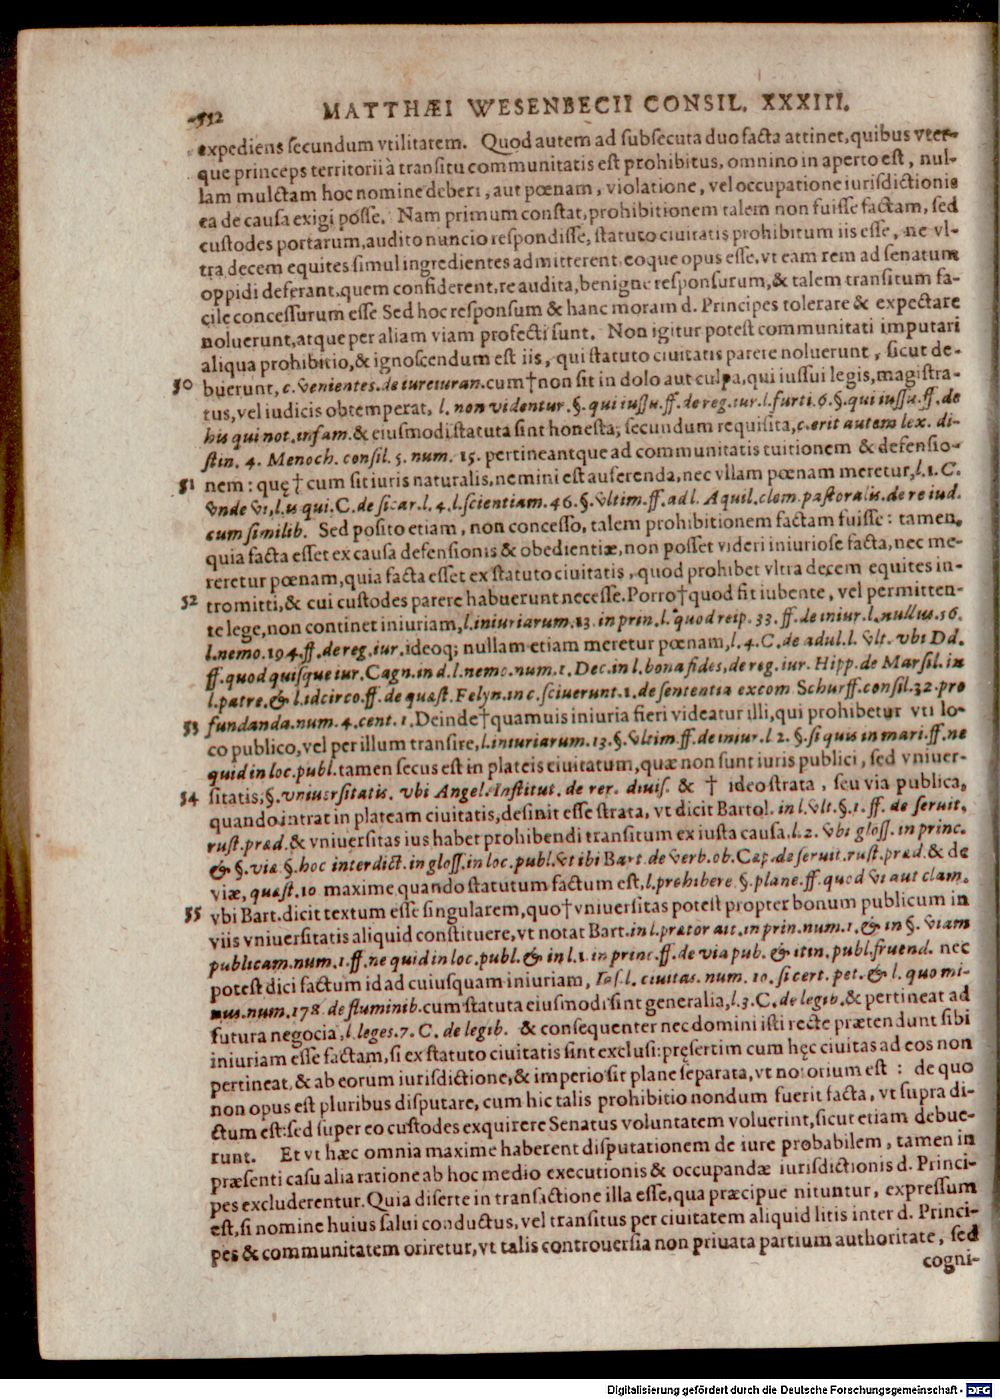 552 MATTHÆI WESENBECII CONSIL. XXXIII.
expediens secundum vtilitatem. Quod autem ad subsecuta duo facta attinet, quibus vter-
que princeps territorii à transitu communitatis est prohibitus, omnino in aperto est, nul-
lam mulctam hoc nomine deberi, aut pœnam, violatione, vel occupatione iurisdictionis
ea de causa exigi posse. Nam primum constat, prohibitionem talem non fuisse factam, sed
custodes portarum, audito nuncio respondisse, statuto ciuitatis prohibitum iis esse, ne vl-
tra decem equites simul ingredientes admitterent, eoque opus esse, vt eam rem ad senatum
oppidi deferant, quem confiderent, re audita, benigne responsurum, & talem transitum fa-
cile concessurum esse Sed hoc responsum & hanc moram d. Principes tolerare & expectare
noluerunt, atque per aliam viam profecti sunt. Non igitur potest communitati imputari
aliqua prohibitio, & ignoscendum est iis, qui statuto ciuitatis parere noluerunt, sicut de-
50 buerunt, c. venientes. de iureiuran. cum † non sit in dolo aut culpa, qui iussui legis, magistra-
tus, vel iudicis obtemperat, l. non videntur. §. qui iussu. ff. de reg. iur. l. furti. 6. §. qui iussu. ff. de
his qui not. infam. & eiusmodi statuta sint honesta, secundum requisita, c. erit autem lex. di-
stin. 4. Menoch. consil. 5. num. 15. pertineantque ad communitatis tuitionem & defensio-
51 nem: quę † cum sit iuris naturalis, nemini est auferenda, nec vllam pœnam meretur, l. 1. C.
vnde vi, l. is qui. C. de sicar. l. 4. l. scientiam. 46. §. vltim. ff. ad l. Aquil. clem. pastoralis. de re iud.
cum similib. Sed posito etiam, non concesso, talem prohibitionem factam fuisse: tamen,
quia facta esset ex causa defensionis & obedientiæ, non posset videri iniuriose facta, nec me-
reretur pœnam, quia facta esset ex statuto ciuitatis, quod prohibet vltra decem equites in-
52 tromitti, & cui custodes parere habuerunt necesse. Porro † quod fit iubente, vel permitten-
te lege, non continet iniuriam, l. iniuriarum. 13. in prin. l. quod reip. 33. ff. de iniur. l. nullus. 16.
l. nemo. 194. ff. de reg. iur. ideoq; nullam etiam meretur pœnam, l. 4. C. de adul. l. vlt. vbi Dd.
ff. quod quisque iur. Cagn. in d. l. nemo. num. 1. Dec. in l. bona fides, de reg. iur. Hipp. de Marsil. in
l. patre. & l. idcirco. ff. de quæst. Felyn. in c. sciuerunt. 1. de sententia excom. Schurff. consil. 32. pro
53 fundanda. num. 4. cent. 1. Deinde † quamuis iniuria fieri videatur illi, qui prohibetur vti lo-
co publico, vel per illum transire, l. iniuriarum. 13. §. vltim. ff. de iniur. l 2. §. si quis in mari. ff. ne
quid in loc. publ. tamen secus est in plateis ciuitatum, quæ non sunt iuris publici, sed vniuer-
54 sitatis, §. vniuersitatis. vbi Angel. Institut. de rer. diuis. & † ideo strata, seu via publica,
quando intrat in plateam ciuitatis, desinit esse strata, vt dicit Bartol. in l. vlt. §. 1. ff. de seruit.
rust. præd. & vniuersitas ius habet prohibendi transitum ex iusta causa. l. 2. vbi gloss. in princ.
& §. via §. hoc interdict. in gloss. in loc. publ. vt ibi Bart. de verb. ob. Cap. de seruit. rust. præd. & de
viæ, quæst. 10 maxime quando statutum factum est, l. prohibere §. plane. ff. quod vi aut clam.
55 vbi Bart. dicit textum esse singularem, quo † vniuersitas potest propter bonum publicum in
viis vniuersitatis aliquid constituere, vt notat Bart. in l. prætor ait. in prin. num. 1. & in §. viam
publicam. num. 1. ff. ne quid in loc. publ. & in l. 1. in princ. ff. de via pub. & itin. publ. fruend. nec
potest dici factum id ad cuiusquam iniuriam, Ias. l. ciuitas. num. 10. si cert. pet. & l. quo mi-
nus. num. 178. de fluminib. cum statuta eiusmodi sint generalia, l. 3. C. de legib. & pertineat ad
futura negocia, l. leges. 7. C. de legib. & consequenter nec domini isti recte prætendunt sibi
iniuriam esse factam, si ex statuto ciuitatis sint exclusi: pręsertim cum hęc ciuitas ad eos non
pertineat, & ab eorum iurisdictione, & imperio sit plane separata, vt notorium est: de quo
non opus est pluribus disputare, cum hic talis prohibitio nondum fuerit facta, vt supra di-
ctum est: sed super eo custodes exquirere Senatus voluntatem voluerint, sicut etiam debue-
runt. Et vt hæc omnia maxime haberent disputationem de iure probabilem, tamen in
præsenti casu alia ratione ab hoc medio executionis & occupandæ iurisdictionis d. Princi-
pes excluderentur. Quia diserte in transactione illa esse, qua præcipue nituntur, expressum
est, si nomine huius salui conductus, vel transitus per ciuitatem aliquid litis inter d. Princi-
pes & communitatem oriretur, vt talis controuersia non priuata partium authoritate, sed
cogni-
Digitalisierung gefördert durch die Deutsche Forschungsgemeinschaft - DFG